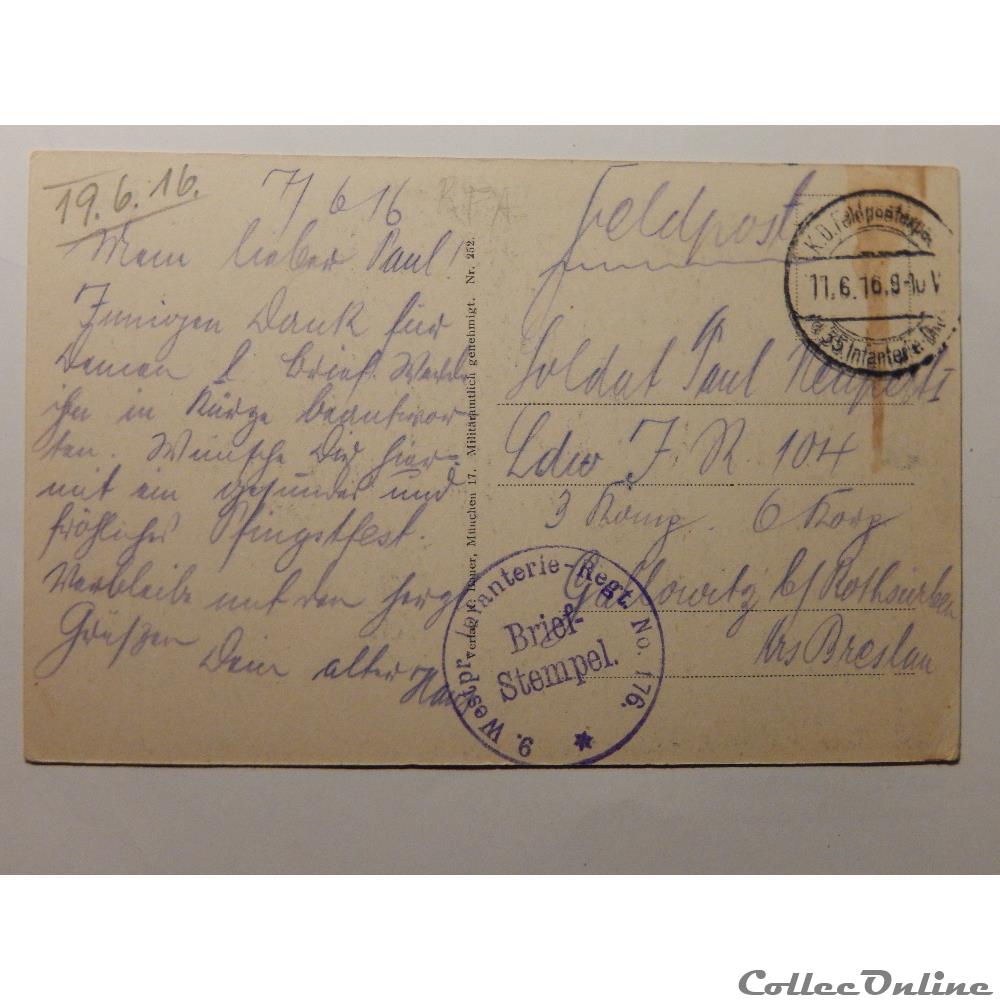 19.6.16.
7/6 16
Mein lieber Paul!
Innigen Dank für
Deinen l Brief. Werde
ihn in Kürze beantwor-
ten. Wünsche Dir hier-
mit ein gesundes und
fröhliches Pfingstfest.
Verbleibe mit den herzl
Grüßen
Dein alter
Verlag K. Bauer, München 17. Militäramtlich genehmigt. Nr. 252.
Feldpost
K.D.Feldpostexped.
11.6.16.9-10 V
35. Infanterie-Div
Soldat Paul
Ldw J. R 104
3 Komp. 6 Korp
b/ Rothsürben
Krs Breslau
9. Westpr. Infanterie-Regt. No. 176.
Brief-
Stempel.
CollecOnline